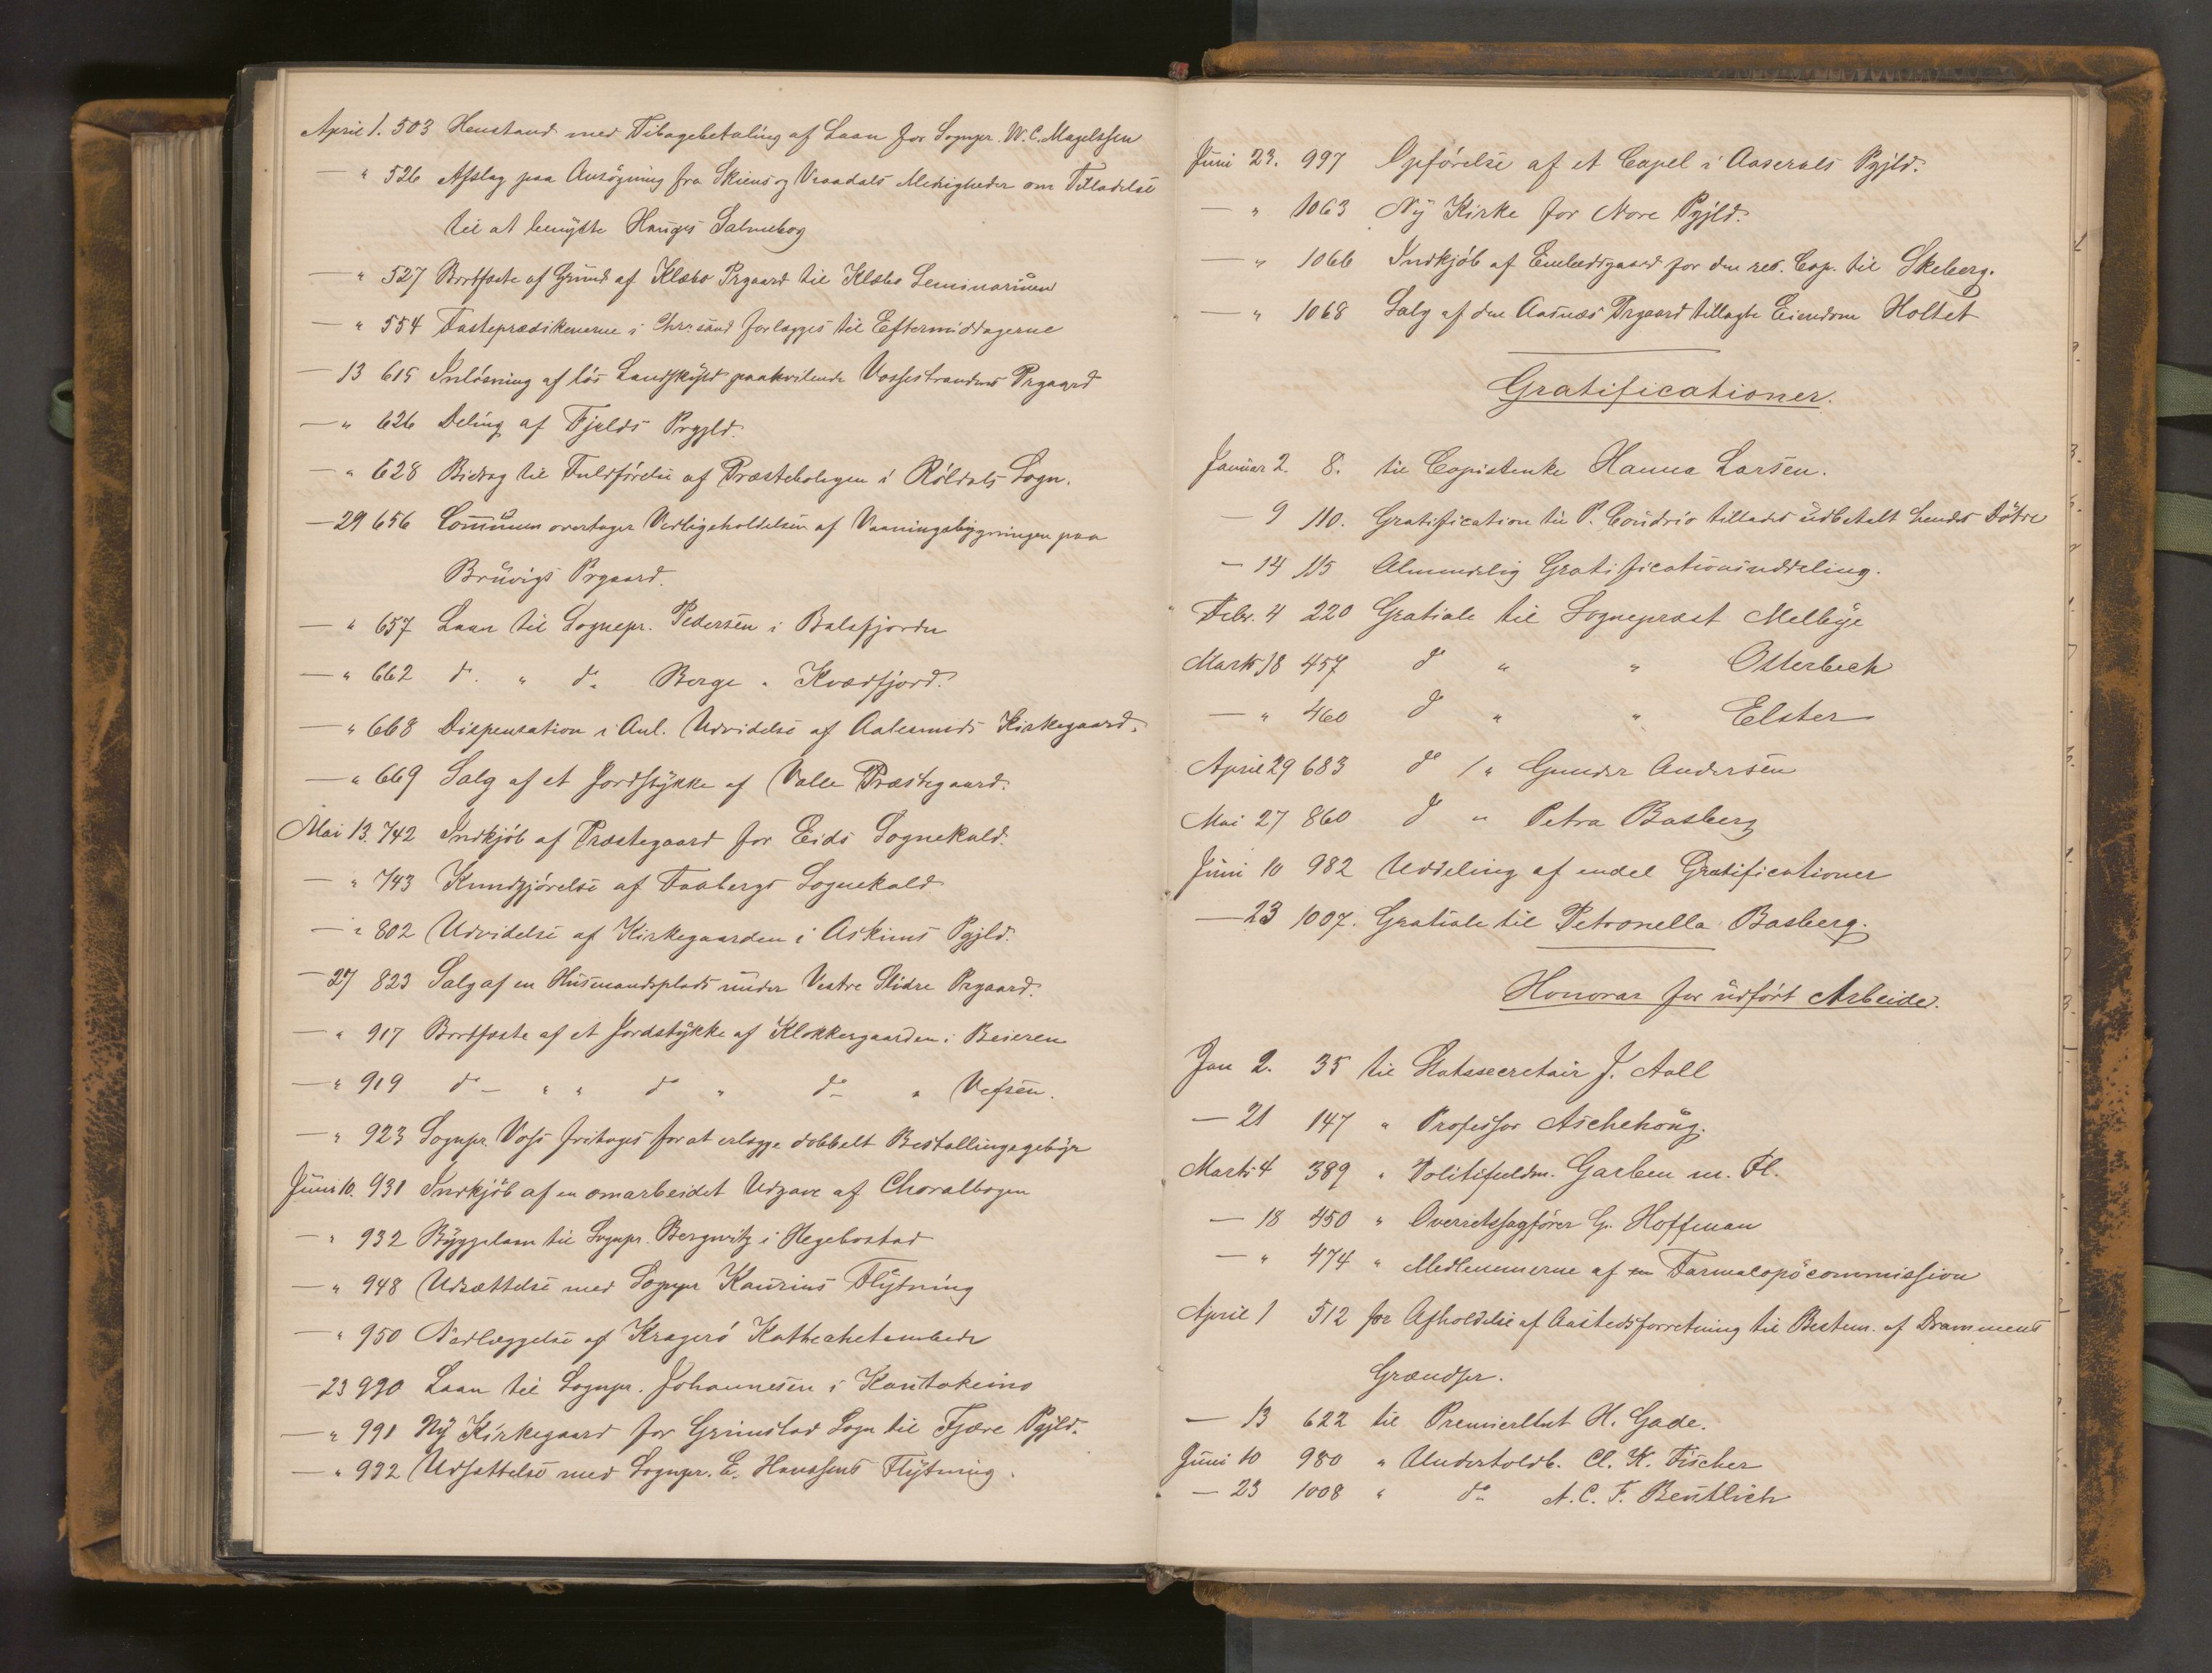 April 1. 503 Henstand med Tilbagebetaling af Laan for Sognpr. W. C. Magelssen
— " 526 Afslag paa Ansögning fra Skiens og Vraadals Menigheder om Tilladelse
til at benytte Hauges Salmebog
— " 527 Bortfæste af Grund af Klæbo Prgaard til Klæbo Seminarium
— " 554 Fasteprædikenerne i Chr:sand forlægges til Eftermiddagerne
— 13 615 Indlösning af lös Landskyld paahvilende Vossestrandens Prgaard
— " 626 Deling af Fjelds Prgjld.
— " 628 Bidrag til Fuldförelse af Præsteboligen i Röldals Sogn.
— 29 656 Communen overtager Vedligeholdelsen af Vaaningsbygningen paa
Bruvigs Prgaard.
— " 657 Laan til Sognepr. Pedersen i Balsfjorden
— " 662 do. " do Berge " Kvædfjord.
— " 668 Dispensation i Anl. Udvidelse af Aalesunds Kirkegaard.
— " 669 Salg af et Jordstykke af Valle Præstegaard.
Mai 13. 742 Indkjöb af Præstegaard for Eids Sognekald.
— " 743 Kundgjörelse af Faabergs Sognekald
— " 802 Udvidelse af Kirkegaarden i Askims Pgjld.
— 27 823 Salg af en Husmandsplads under Vestre Slidre Prgaard.
— " 917 Bortfæste af et Jordstykke af Klokkergaarden i Beieren
— " 919 do — " " do " do " Vefsen.
— " 923 Sognpr. Voss fritages for at erlægge dobbelt Bestallingsgebyr
Juni 10. 931 Indkjöb af en omarbeidet Udgave af Choralbogen
— " 932 Byggelaan til Sognpr. Bergwitz i Hegebostad
— " 948 Udsættelse med Sognpr Kaurins Flytning
— " 950 Nedlæggelse af Kragerö Kathechetembede
— 23 990 Laan til Sognpr. Johannesen i Kautokeino
— " 991 Ny Kirkegaard for Grimstad Sogn til Fjære Pgjld.
— " 992 Udsættelse med Sognpr. E. Hanssens Flytning.
Juni 23. 997 Opförelse af et Capel i Aaserals Pgjld.
— " 1063 Ny Kirke for Nore Pgjld.
— " 1066 Indkjöb af Embedsgaard for den res. Cap. til Skeberg.
— " 1068 Salg af den Aasnæs Prgaard tillagte Eiendom Holtet
Gratificationer.
Januar 2. 8. til Copistenke Hanna Larsen.
— 9 110. Gratification til P. Coudrio tillades udbetalt hendes Döttre
— 14 115 Almindelig Gratificationsuddeling.
Febr. 4 220 Gratiale til Sognepræst Melbye
Marts 18 457 do " " Osterbech
— " 460 do " " Elster
April 29 683 do " Gunder Andersen
Mai 27 860 do " Petra Basberg
Juni 10 982 Uddeling af endel Gratificationer
— 23 1007. Gratiale til Petronella Basberg.
Honorar for udfört Arbeide.
Jan 2. 35 til Statssecretair J. Aall
— 21 147 " Professor Aschehoug.
Marts 4 389 " Politifuldm. Garben m. Fl.
— 18 450 " Overretssagförer G. Hoffman
— " 474 " Medlemmerne af en Farmakopöcommission
April 1 512 for Afholdelse af Aastedsforretning til Bestem. af Drammens
Grændser.
— 13 622 til Premierltnt H. Gade.
Juni 10 980 " Undertoldb. Cl. K. Fischer
— 23 1008 " do A. C. F. Beutlich